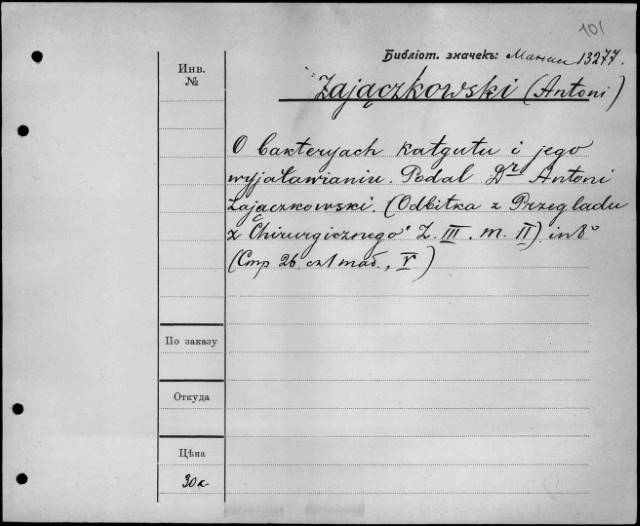 101
Библіот. значекъ: 13277.
Инв.
№
Zajączkowski (Antoni)
O bakteryach katgutu i jego
wyjaławianiu. Podał Dr Antoni
Zajączkowski. (Odbitka z Przeglądu
Chirurgicznego Z. III. m. II) in 8°
(Стр 26 таб., V)
По заказу
Откуда
Цѣна
30к